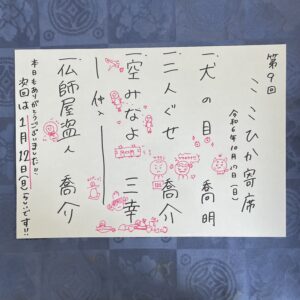 第9回
ここひか寄席
令和6年10月27日(日)
一、犬の目 喬明
一、二人ぐせ 喬介
一、空みなよ 三幸
仲入
一、仏師屋盗人 喬介
本日もありがとうございました!!
次回は1月12日(日)らいです!!